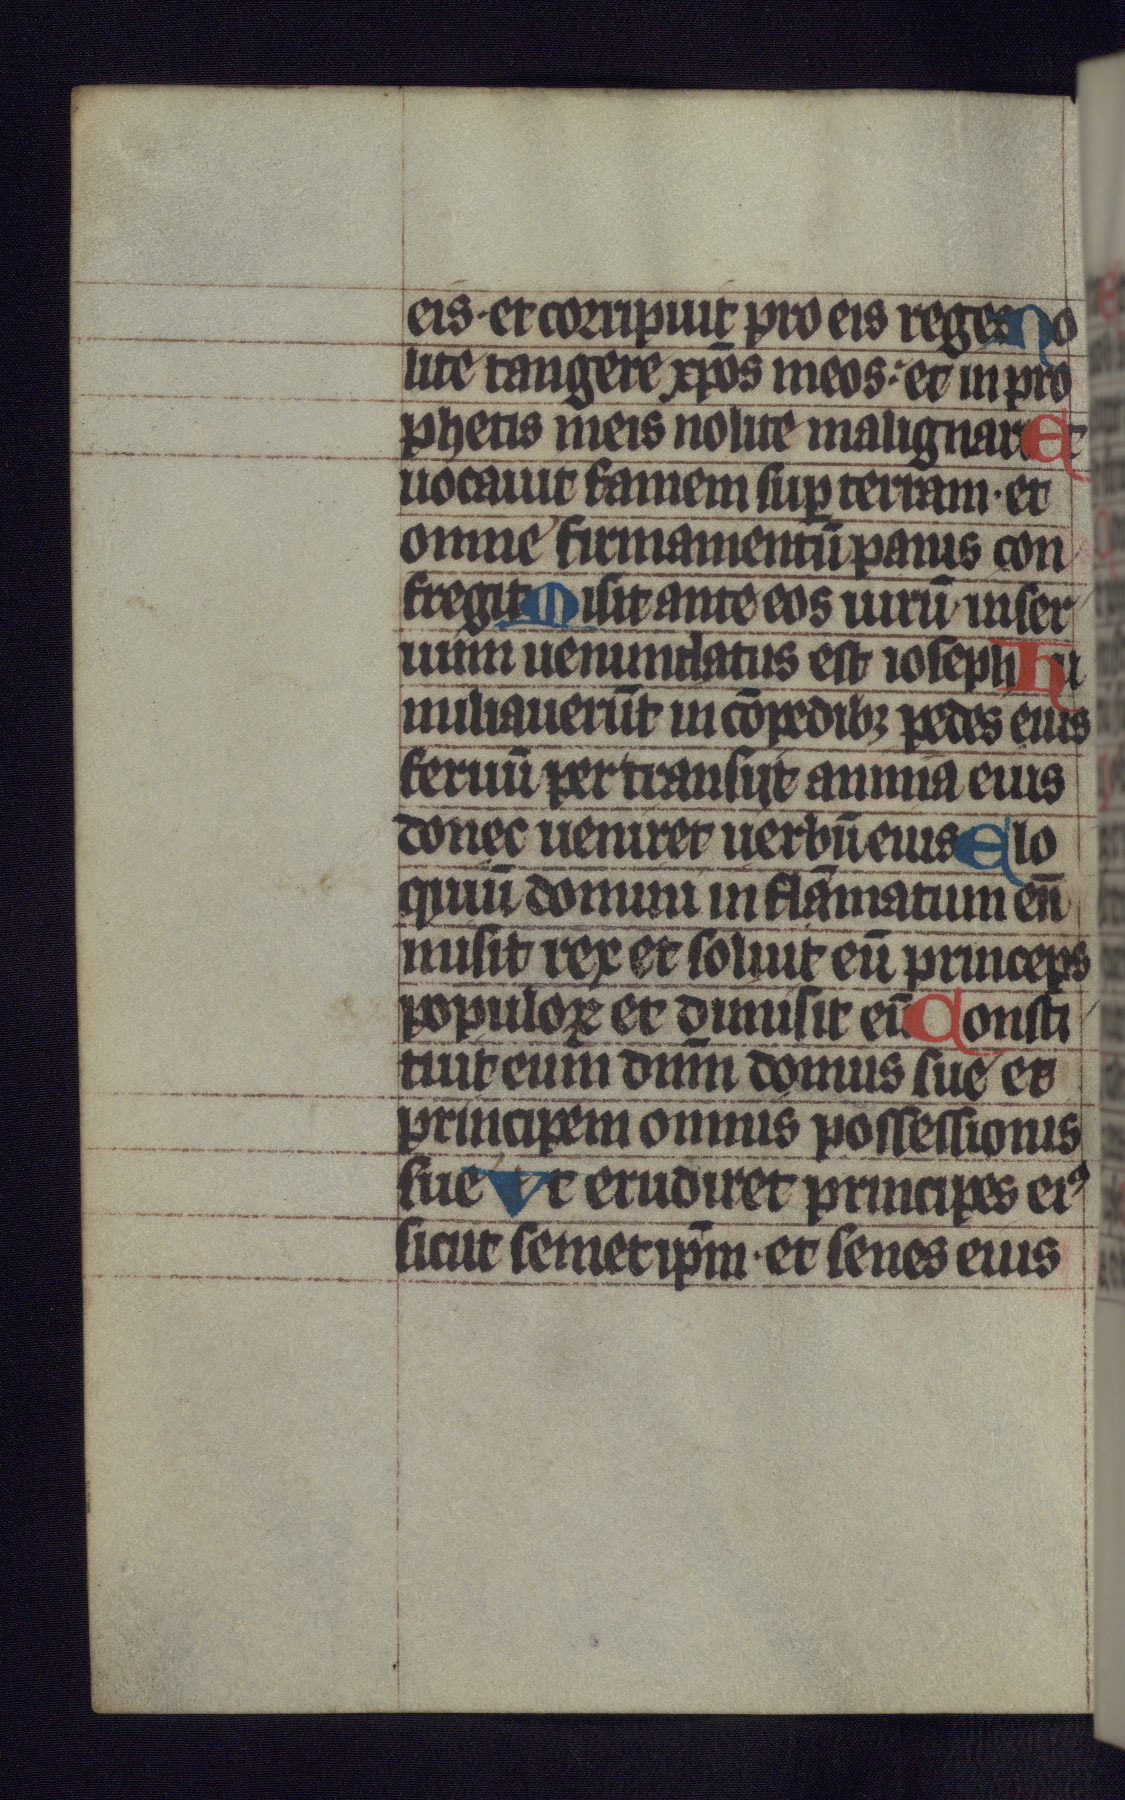 eis · et corripuit pro eis reges No
lite tangere xp̄os meos : et in pro
phetis meis nolite malignari Et
uocauit famem sup̱ terram · et
omne firmamentū panis con
fregit Misit ante eos uirū in ser
uum uenundatus est ioseph Hu
miliauerūt in cōpedibꝫ pedes eius
ferrū pertransijt anima eius
donec ueniret uerbū eius Elo
quiū domini inflāmatum eū
misit rex et soluit eū princeps
populoꝝ et dimisit eū Consti
tuit eum dn̄m domus sue et
principem omnis possessionis
sue Vt erudiret principes eiꝰ
sicut semetip̄m · et senes eius